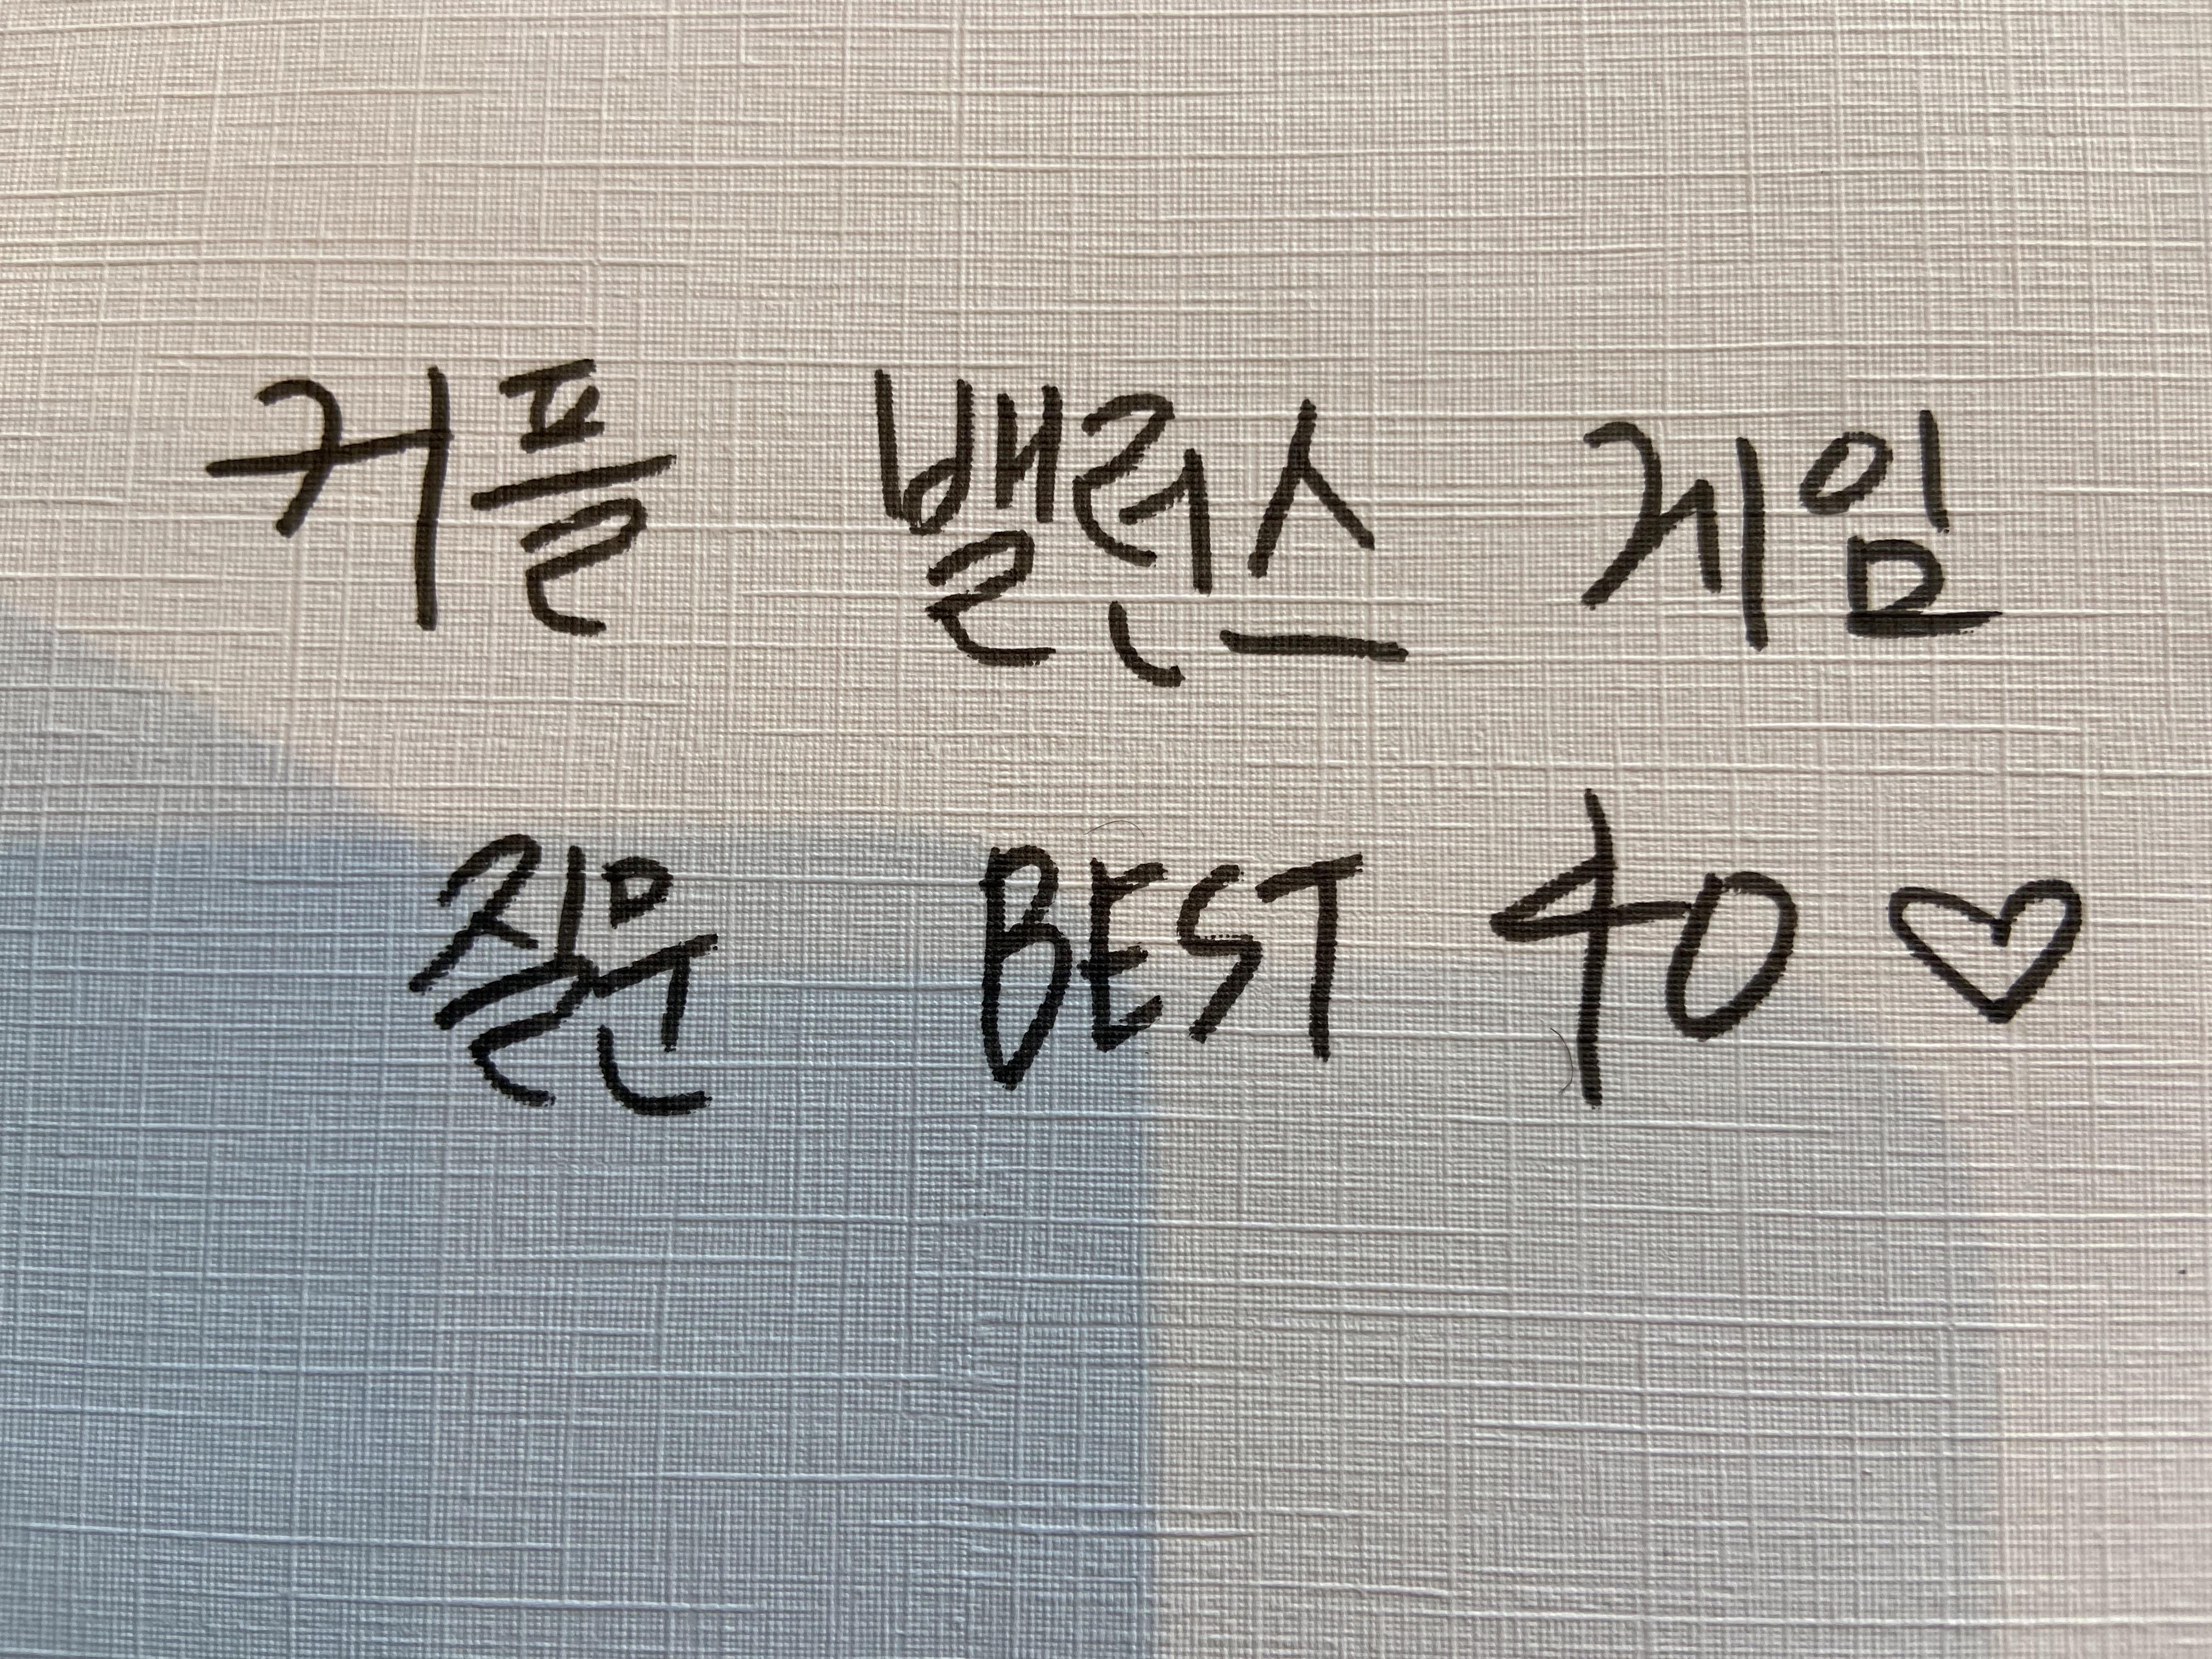 커플 밸런스 게임
질문 BEST 40 ♡